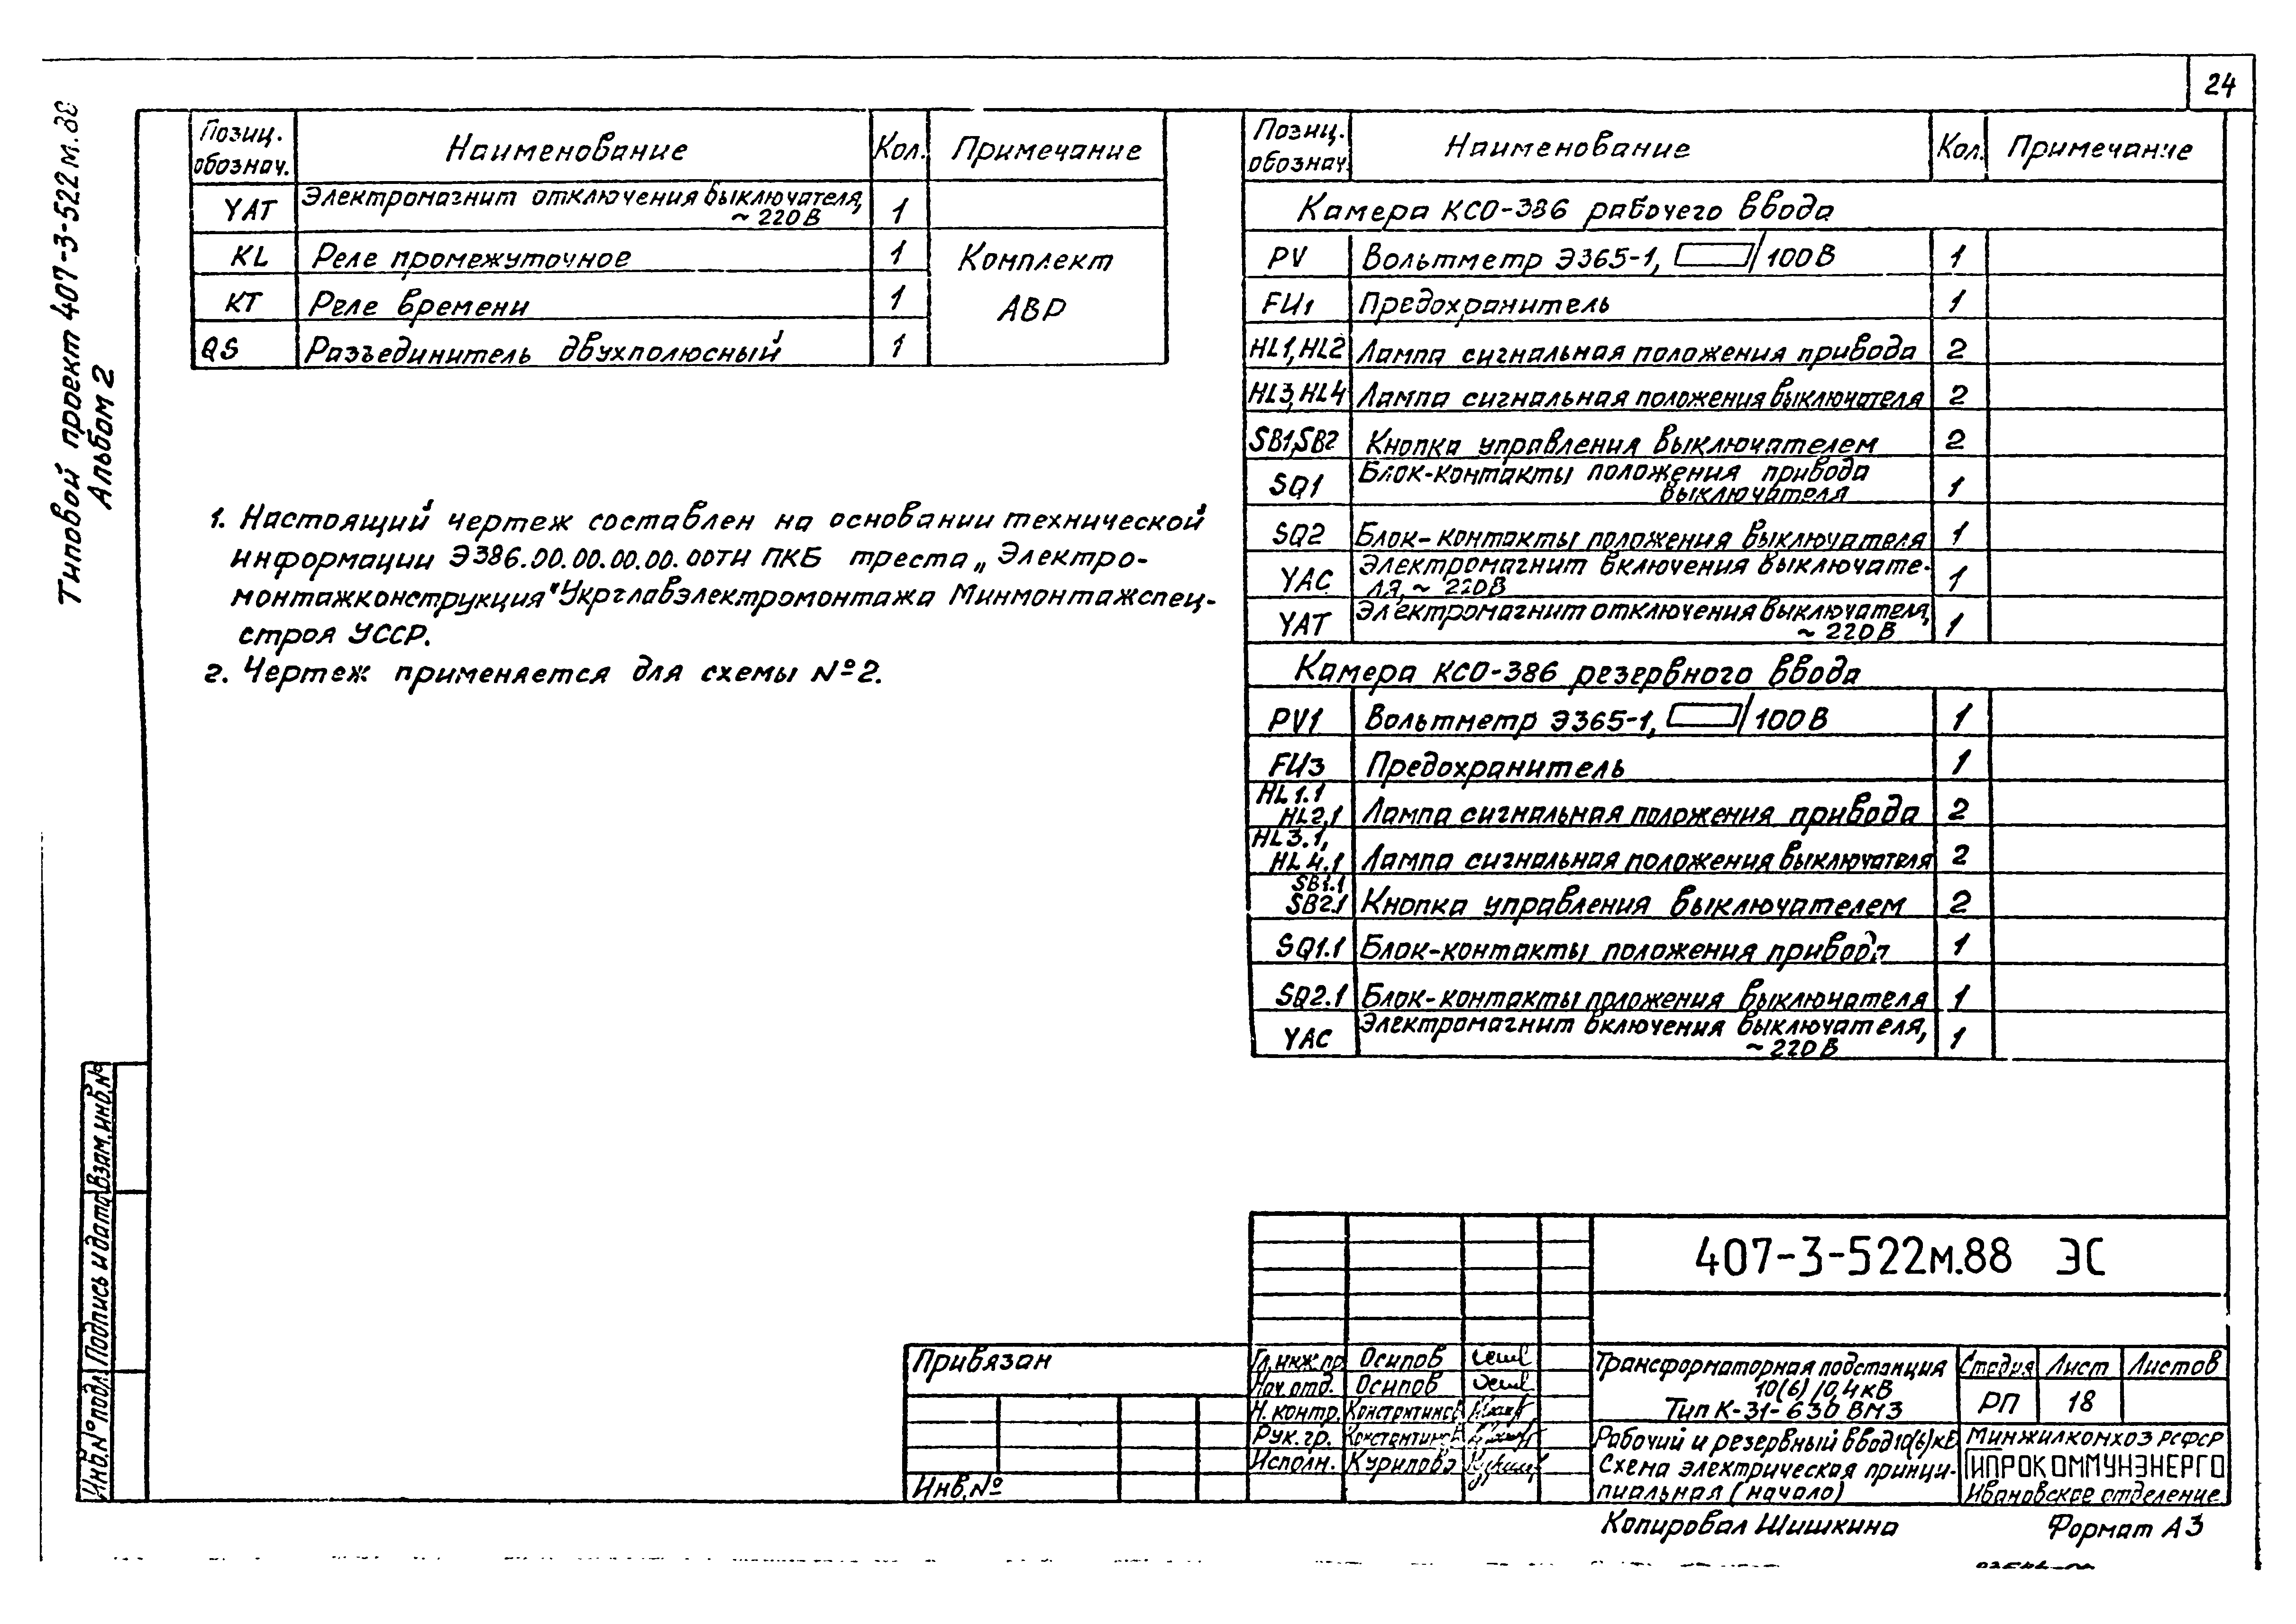 24
Типовой проект 407-3-522м.88
Альбом 2
Позиц. обознач. Наименование Кол. Примечание
YAT Электромагнит отключения выключателя, ~220В 1
KL Реле промежуточное 1 Комплект
KT Реле времени 1 АВР
QS Разъединитель двухполюсный 1
1. Настоящий чертеж составлен на основании технической
информации Э386.00.00.00.00.00ТИ ПКБ треста „Электро-
монтажконструкция" Укрглавэлектромонтажа Минмонтажспец-
строя УССР.
2. Чертеж применяется для схемы №2.
Позиц. обознач. Наименование Кол. Примечание
Камера КСО-386 рабочего ввода
PV Вольтметр Э365-1, /100В 1
FU1 Предохранитель 1
HL1,HL2 Лампа сигнальная положения привода 2
HL3,HL4 Лампа сигнальная положения выключателя 2
SB1,SB2 Кнопка управления выключателем 2
SQ1 Блок-контакты положения привода
выключателя 1
SQ2 Блок-контакты положения выключателя 1
YAC Электромагнит включения выключате-
ля, ~220В 1
YAT Электромагнит отключения выключателя,
~220В 1
Камера КСО-386 резервного ввода
PV1 Вольтметр Э365-1, /100В 1
FU3 Предохранитель 1
HL1.1
HL2.1 Лампа сигнальная положения привода 2
HL3.1,
HL4.1 Лампа сигнальная положения выключателя 2
SB1.1
SB2.1 Кнопка управления выключателем 2
SQ1.1 Блок-контакты положения привода 1
SQ2.1 Блок-контакты положения выключателя 1
YAC Электромагнит включения выключателя,
~220В 1
Взам.инв.№
Подпись и дата
Инв.№ подл.
Привязан
Инв.№
407-3-522м.88 ЭС
Гл.инж.пр Осипов
Нач.отд. Осипов
Н.контр. Константинов
Рук.гр. Константинов
Исполн. Курилова
Трансформаторная подстанция
10(6)/0,4кВ
Тип К-31-630 ВМЗ
Стадия Лист Листов
РП 18
Рабочий и резервный ввод 10(6)кВ
Схема электрическая принци-
пиальная (начало)
Минжилкомхоз РСФСР
ГИПРОКОММУНЭНЕРГО
Ивановское отделение
Копировал Шишкина
Формат А3